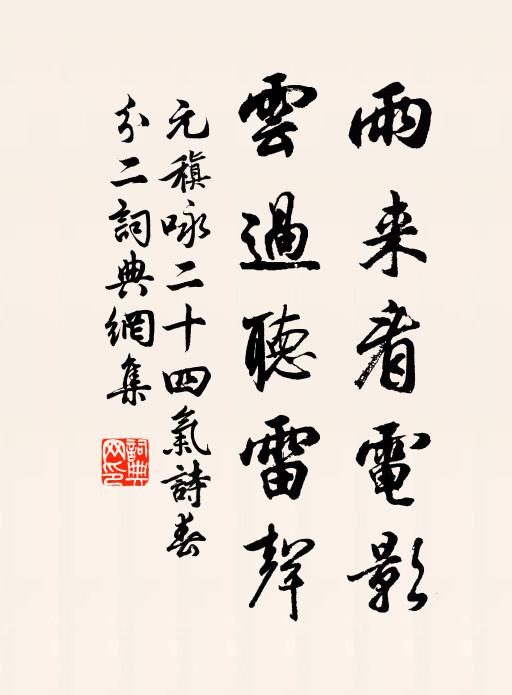 雨来看電影
雲過聽雷聲
元稹咏二十四氣詩春
分二詞典網集
詞典
网印